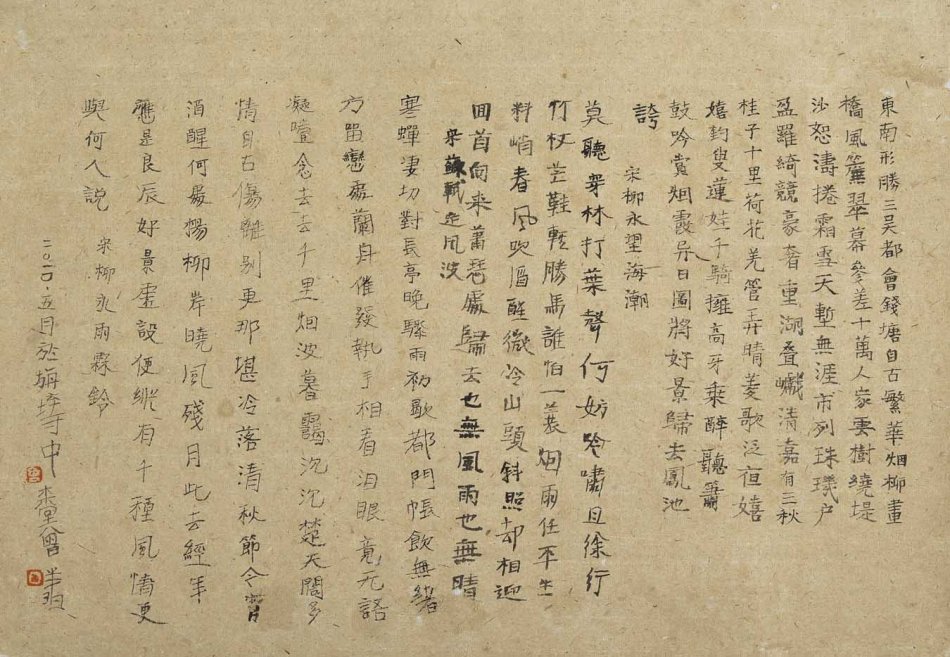 東南形勝三吳都會錢塘自古繁華烟柳畫
橋風簾翠幕參差十萬人家雲樹繞堤
沙怒濤捲霜雪天塹無涯市列珠璣户
盈羅綺競豪奢重湖叠巘清嘉有三秋
桂子十里荷花羌管弄晴菱歌泛夜嬉
嬉釣叟蓮娃千騎擁高牙乘醉聽簫
鼓吟賞烟霞异日圖將好景歸去鳳池
誇
宋柳永望海潮
莫聽穿林打葉聲何妨吟嘯且徐行
竹杖芒鞋輕勝馬誰怕一蓑烟雨任平生
料峭春風吹酒醒微冷山頭斜照却相迎
回首向来蕭瑟處歸去也無風雨也無晴
宋蘇軾定風波
寒蟬凄切對長亭晚驟雨初歇都門帳飲無緒
方留戀處蘭舟催發執手相看泪眼竟无語
凝噎念去去千里烟波暮靄沉沉楚天闊多
情自古傷離别更那堪冷落清秋節今宵
酒醒何處楊柳岸曉風殘月此去經年
應是良辰好景虛設便縱有千種風情更
與何人説
宋柳永雨霖鈴
五月於
寺中